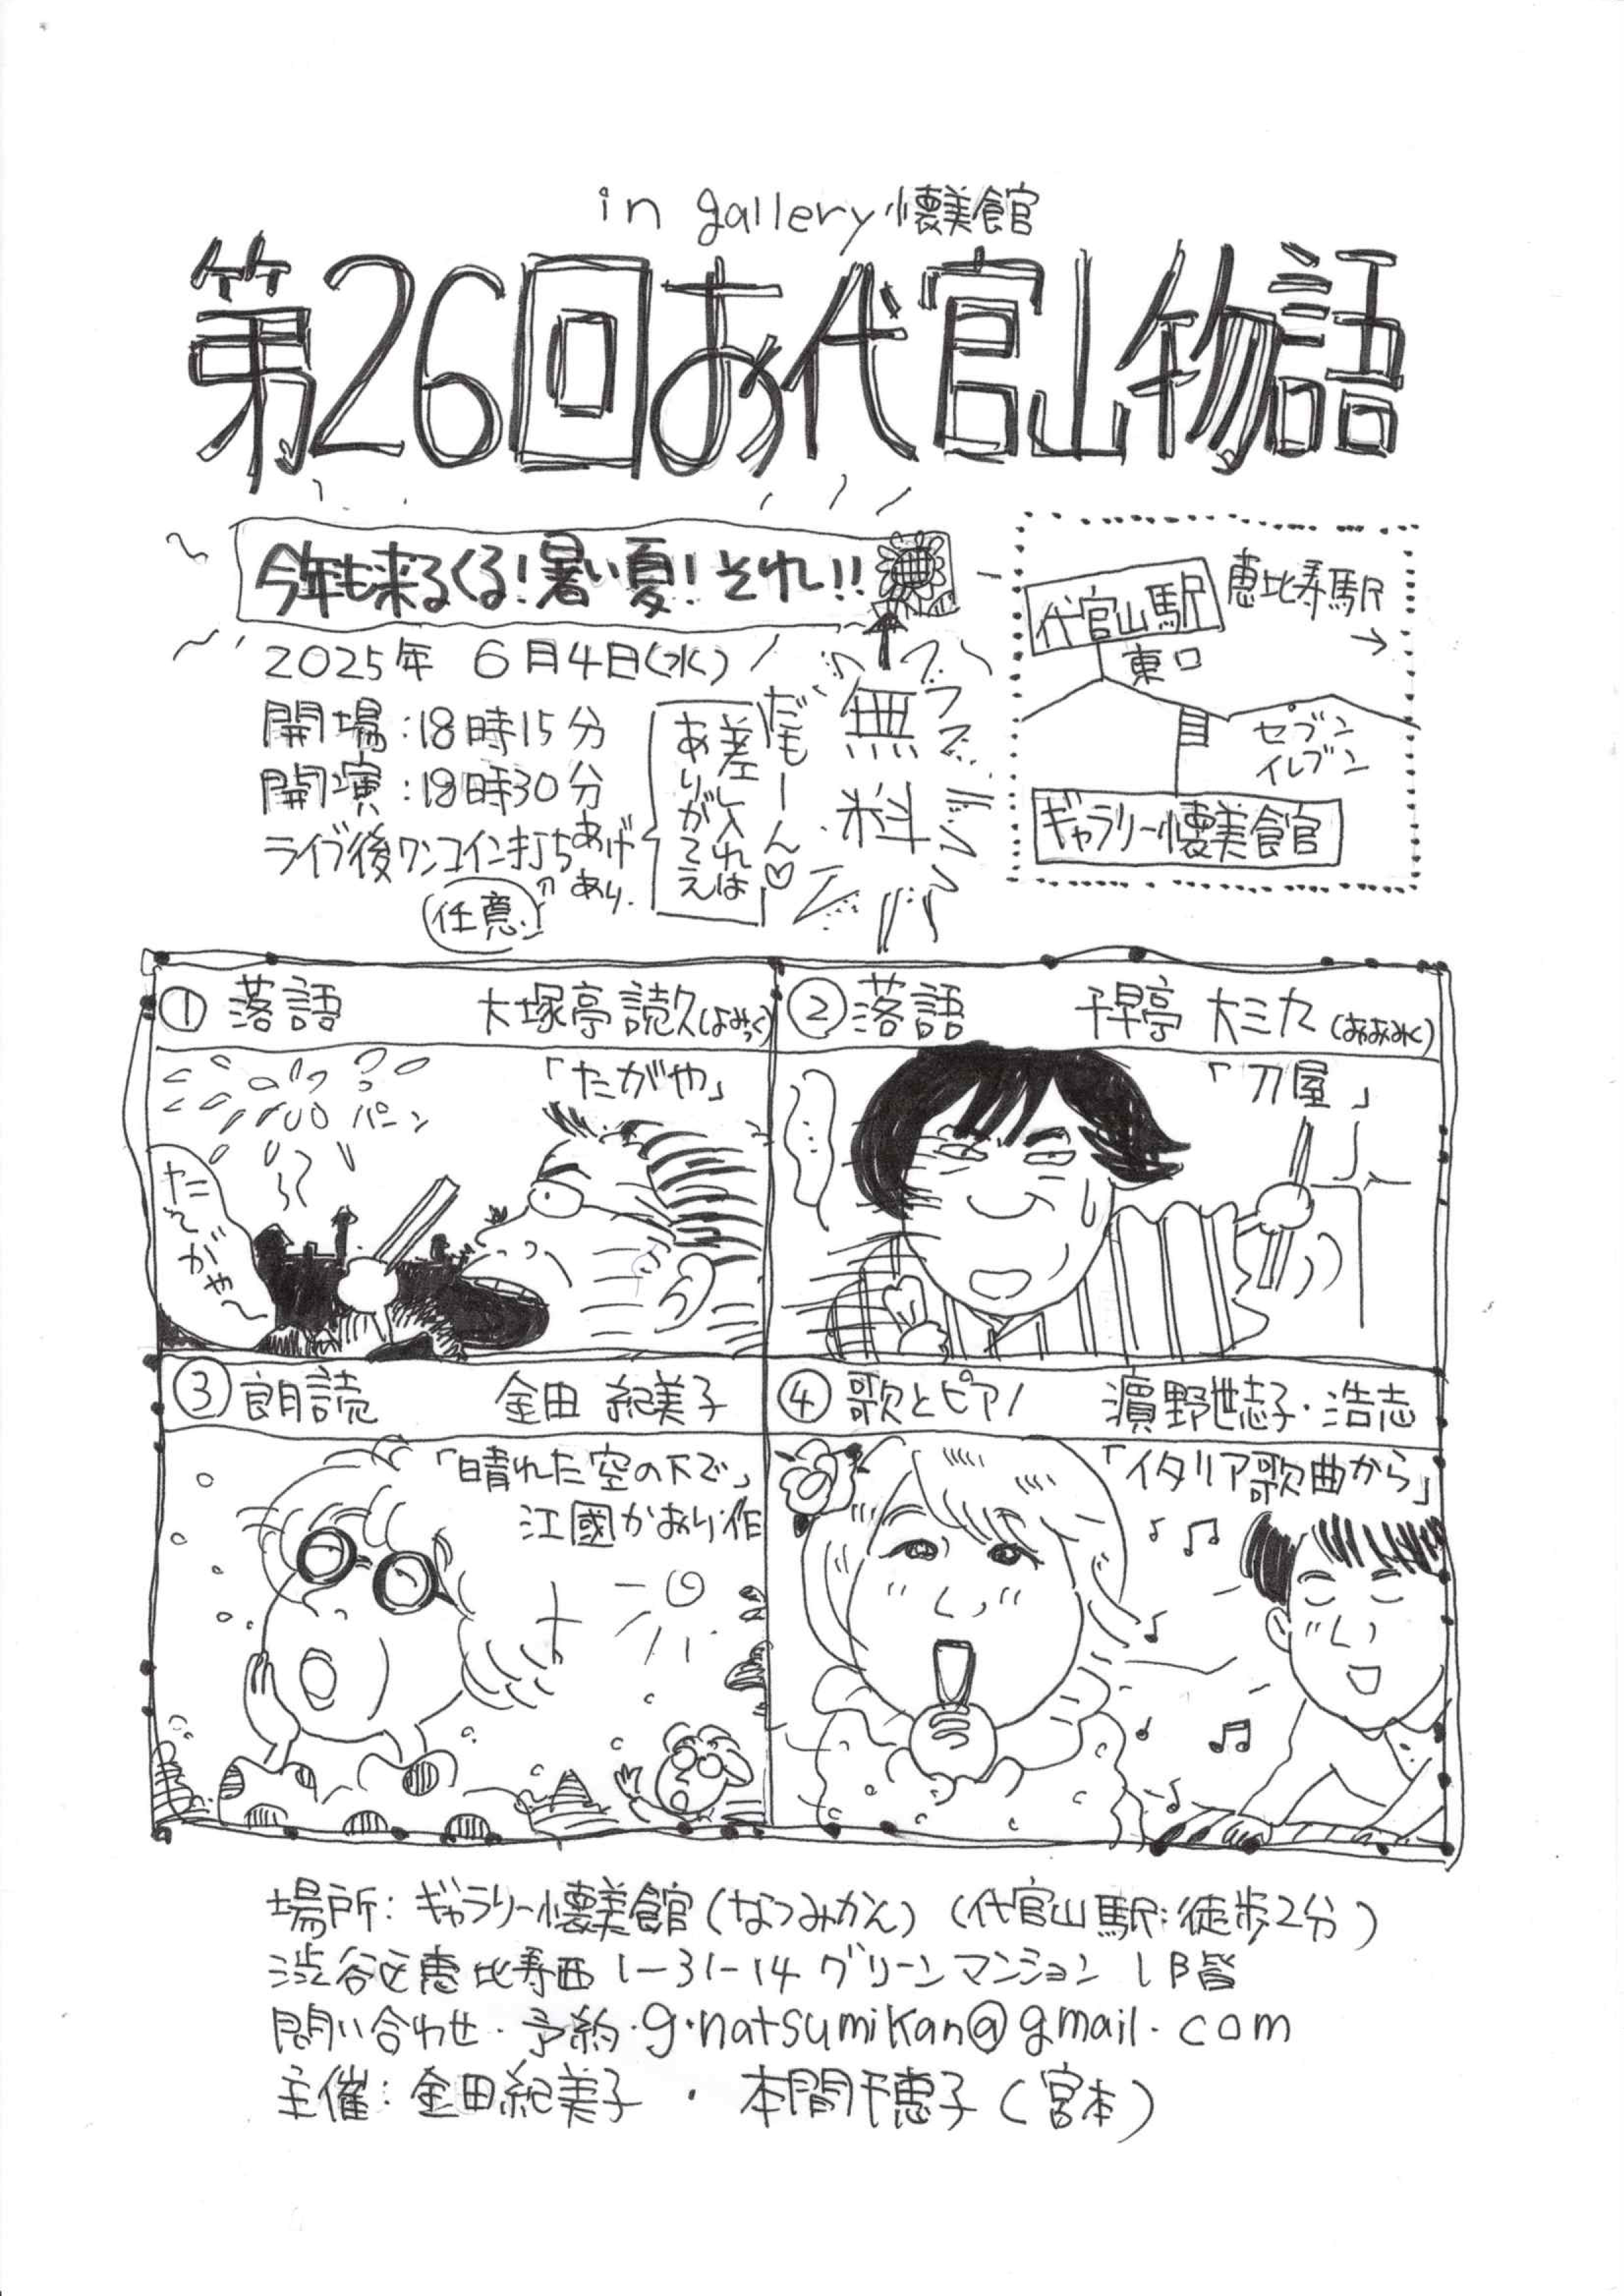 in gallery 懐美館
第26回お代官山物語
今年も来るくる!暑い夏!それ!!
2025年 6月4日(水)
開場:18時15分
開演:18時30分
ライブ後ワンコイン打ちあげあり
任意
差し入れは
ありがてえ
だもーん♡
無料
代官山駅
恵比寿駅
→
東口
セブン
イレブン
ギャラリー懐美館
① 落語 大塚亭 読久(よみっく)
「たがや」
パーン
たーがやー
② 落語 千早亭 大三九(おおみく)
「刀屋」
③ 朗読 金田 紀美子
「晴れた空の下で」
江國かおり・作
④ 歌とピアノ 濵野世志子・浩志
「イタリア歌曲から」
場所:ギャラリー懐美館(なつみかん)(代官山駅:徒歩2分)
渋谷区恵比寿西1-31-14 グリーンマンション 1階
問い合わせ・予約・g.natsumikan@gmail.com
主催:金田紀美子 ・ 本間千恵子(宮本)